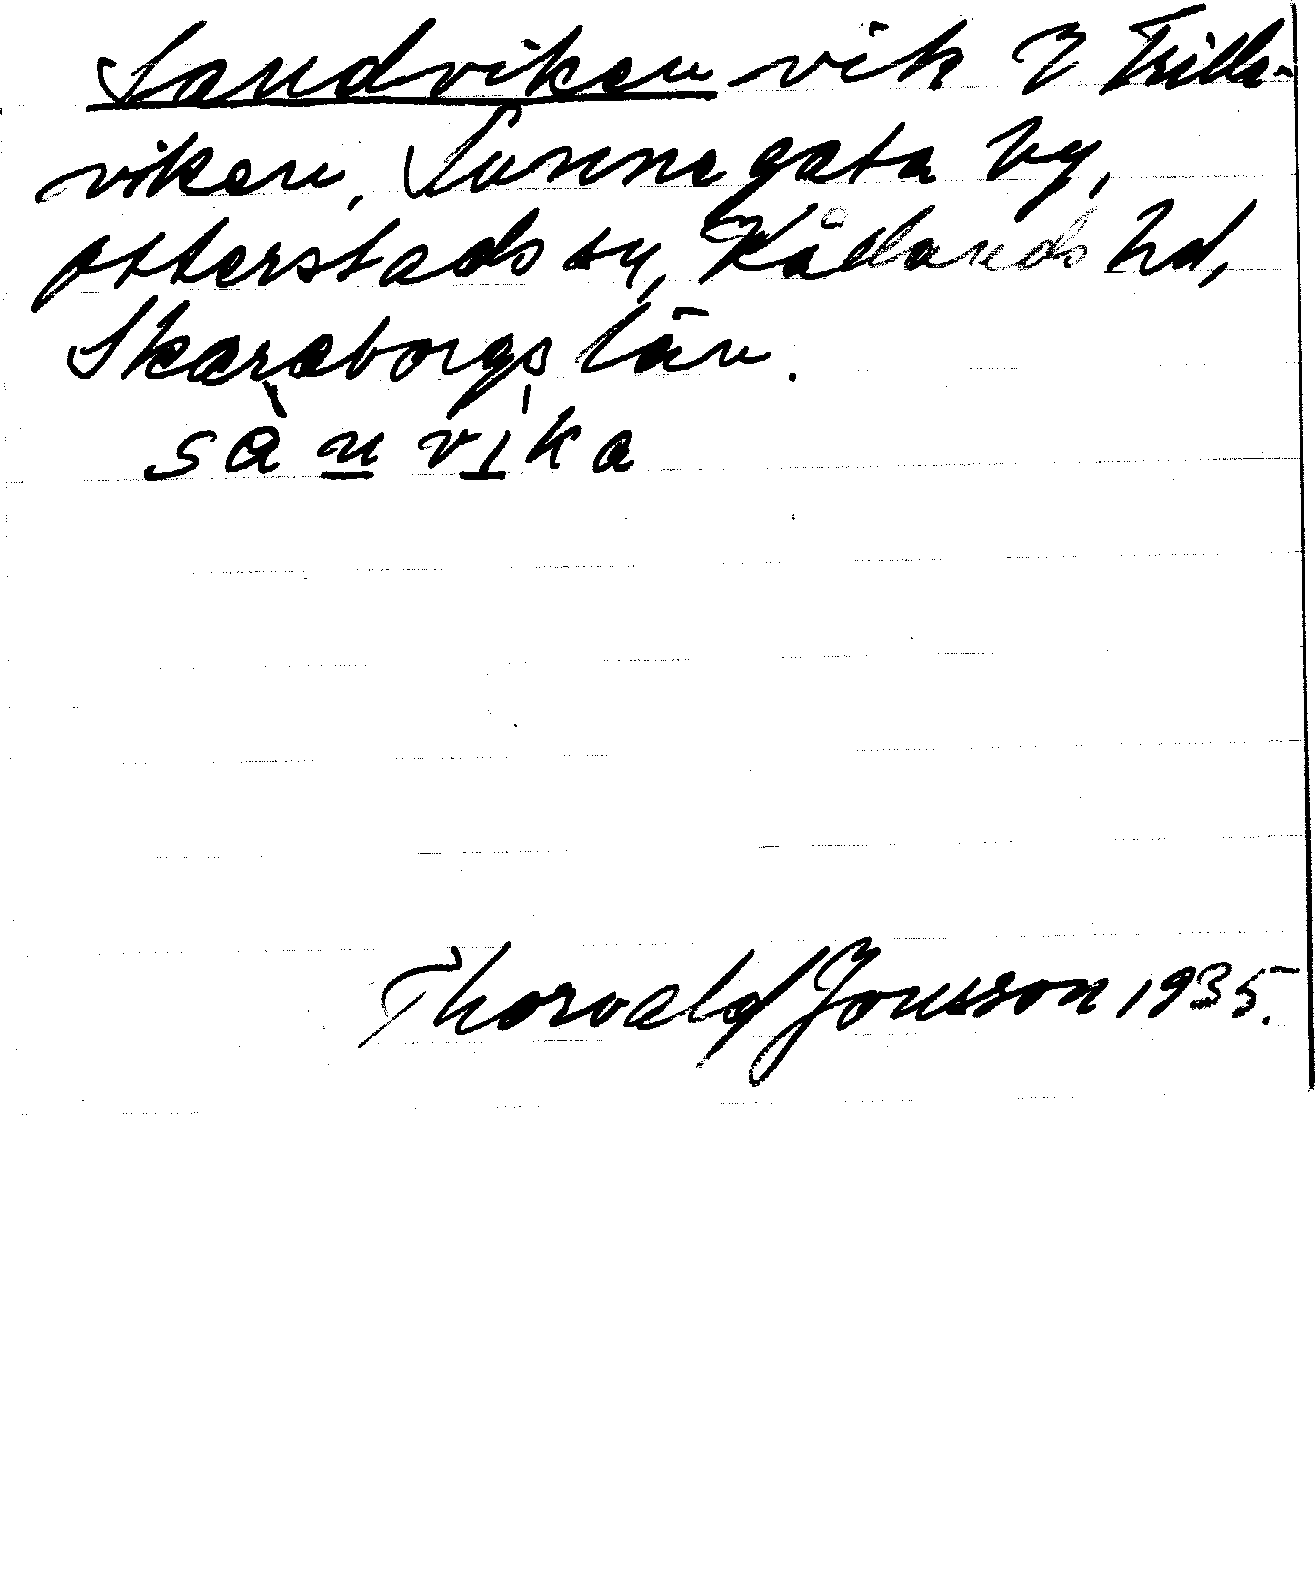 Sandviken vik I Trilla-
viken, Sunnegata by,
Otterstads sn, Kållands hd,
Skaraborgs län.
sànvika
Thorvald Jonsson 1935.